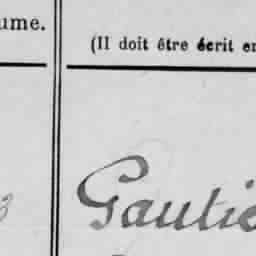 ume.
(Il doit être écrit en
3
Gautie